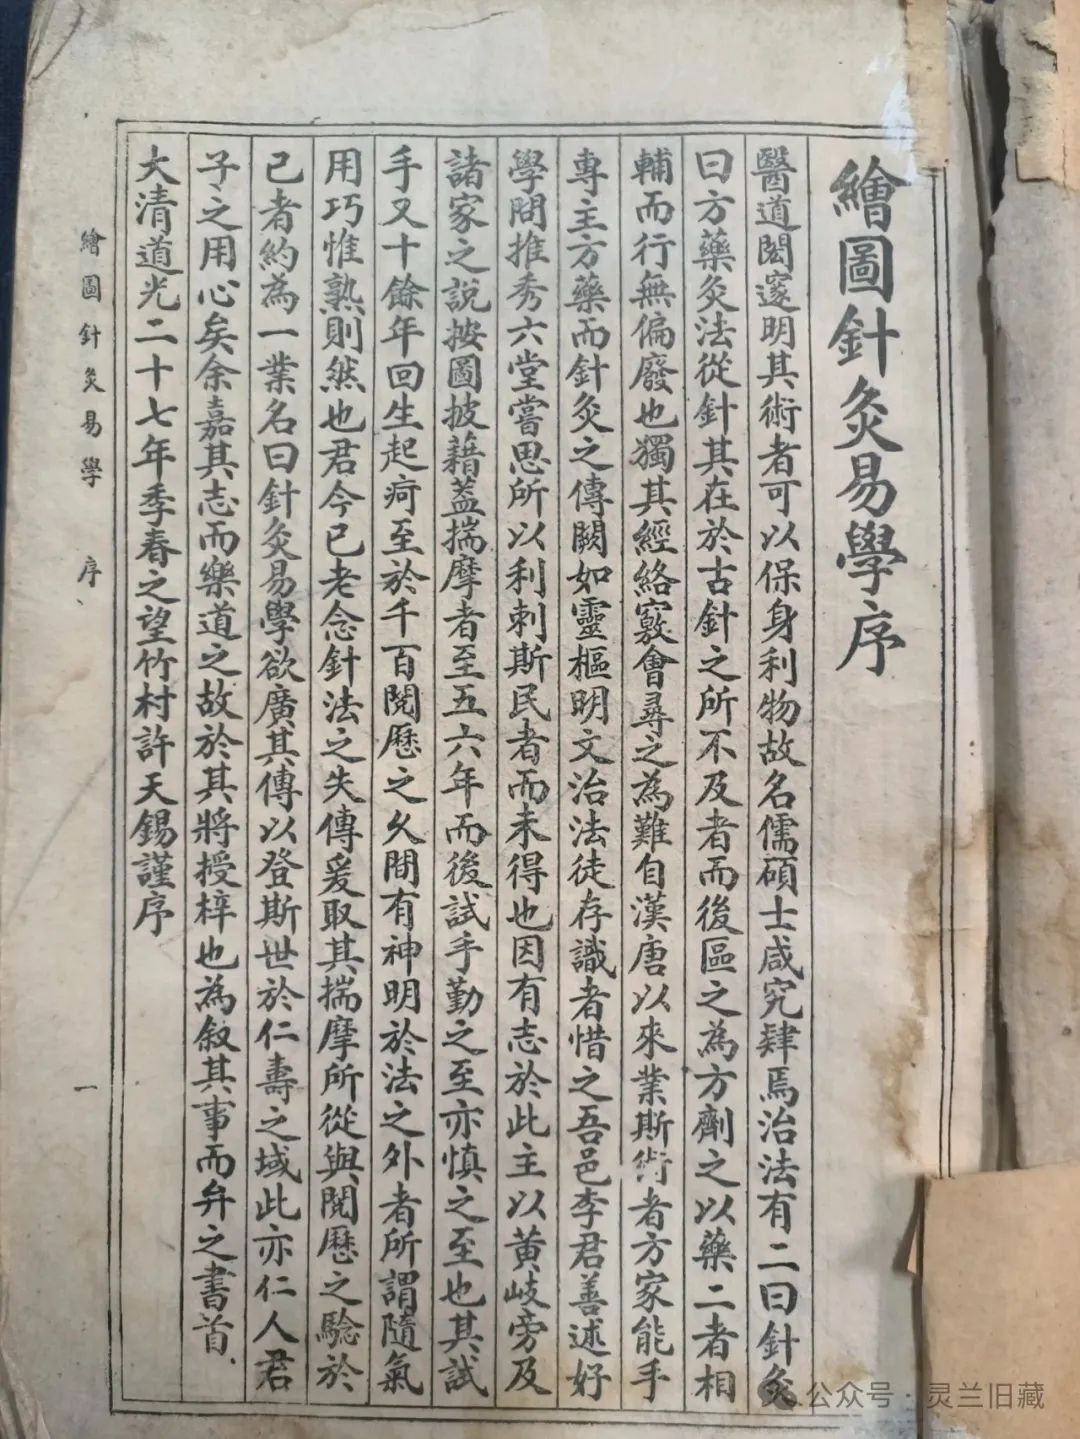 繪圖針灸易學序
醫道閎邃明其術者可以保身利物故名儒碩士咸究肆焉治法有二曰針灸
曰方藥灸法從針其在於古針之所不及者而後區之為方劑之以藥二者相
輔而行無偏廢也獨其經絡竅會尋之為難自漢唐以來業斯術者方家能手
專主方藥而針灸之傳闕如靈樞明文治法徒存識者惜之吾邑李君善述好
學問推秀六堂嘗思所以利刺斯民者而未得也因有志於此主以黃岐旁及
諸家之說按圖披藉蓋揣摩者至五六年而後試手勤之至亦慎之至也其試
手又十餘年回生起疴至於千百閱歷之久間有神明於法之外者所謂隨氣
用巧惟熟則然也君今已老念針法之失傳爰取其揣摩所從與閱歷之騐於
己者約為一業名曰針灸易學欲廣其傳以登斯世於仁壽之域此亦仁人君
子之用心矣余嘉其志而樂道之故於其將授梓也為敘其事而弁之書首
大清道光二十七年季春之望竹村許天錫謹序
繪圖針灸易學 序
一
公众号·灵兰旧藏